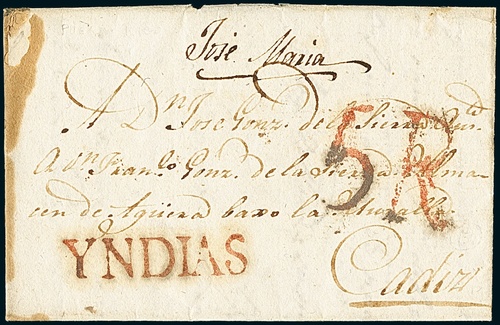 José Maria
A Dn José Gonz. de la Sierra
A dn Franco Gonz. de la Sierra Alma
cen de Agüera baxo la Muralla
5R
YNDIAS
Cadiz